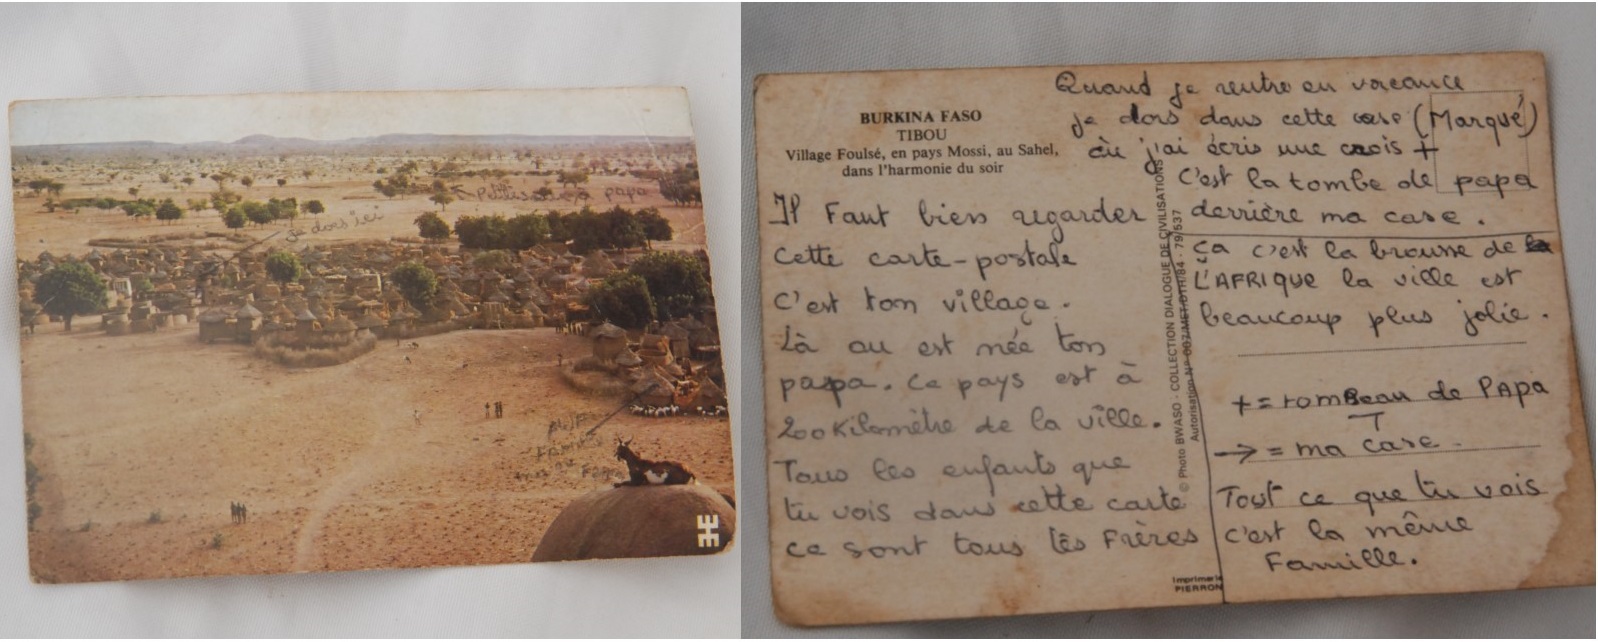 Petites à papa
je dors ici
BURKINA FASO
TIBOU
Village Foulsé, en pays Mossi, au Sahel,
dans l'harmonie du soir
Quand je rentre en vacance
je dors dans cette case (Marqué)
où j'ai écris une crois +
C'est la tombe de papa
derrière ma case.
Il Faut bien regarder
cette carte-postale
C'est ton village.
Là ou est née ton
papa. Ce pays est à
200 Kilomètre de la ville.
Tous les enfants que
tu vois dans cette carte
ce sont tous tes Frères
ça c'est la brousse de
L'AFRIQUE la ville est
beaucoup plus jolie.
+ = tombeau de PAPA
T
→ = ma case.
Tout ce que tu vois
c'est la même
Famille.
© Photo BWASO - COLLECTION DIALOGUE DE CIVILISATIONS
Autorisation N° 007/MET/DTH/84 - 79/537
Imprimerie
PIERRON